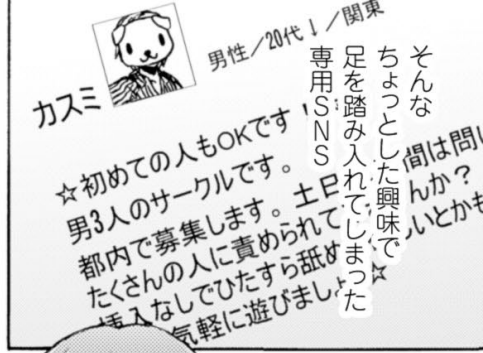 そんな
ちょっとした興味で
足を踏み入れてしまった
専用SNS
カスミ
男性／20代↓／関東
☆初めての人もOKです！
男3人のサークルです。
都内で募集します。土日
間は問い
たくさんの人に責められて
んか？
挿入なしでひたすら舐め
しいとかも
気軽に遊びましょ
☆